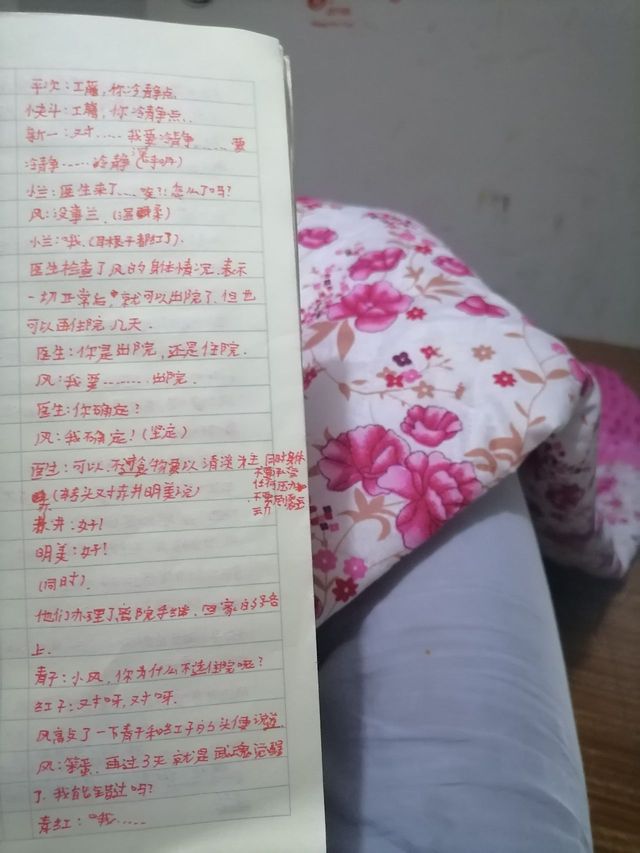 平次:工藤,你冷静点
快斗:工藤,你冷静点.
新一:对……我要冷静……要
冷静……冷静(深呼吸)
小兰:医生来了……唉?!怎么了吗?
风:没事兰.(温柔)
小兰:哦.(耳根子都红了).
医生检查了风的身体情况.表示
一切正常后,就可以出院了.但也
可以再住院几天.
医生:你是出院,还是住院.
风:我要………出院.
医生:你确定?
风:我确定!(坚定)
医生:可以.不过食物要以清淡为主 同时身体
不要
任何压力
不要
(转头又对赤井明美说)
赤井:好!
明美:好!
(同时).
他们办理了离院手续.回家的路
上.
青子:小风,你为什么不选住院呢?
红子:对呀,对呀.
风敲了一下青子和红子的头便说道
风:笨蛋,再过3天就是武魂觉醒
了.我能错过吗?
青红:哦……